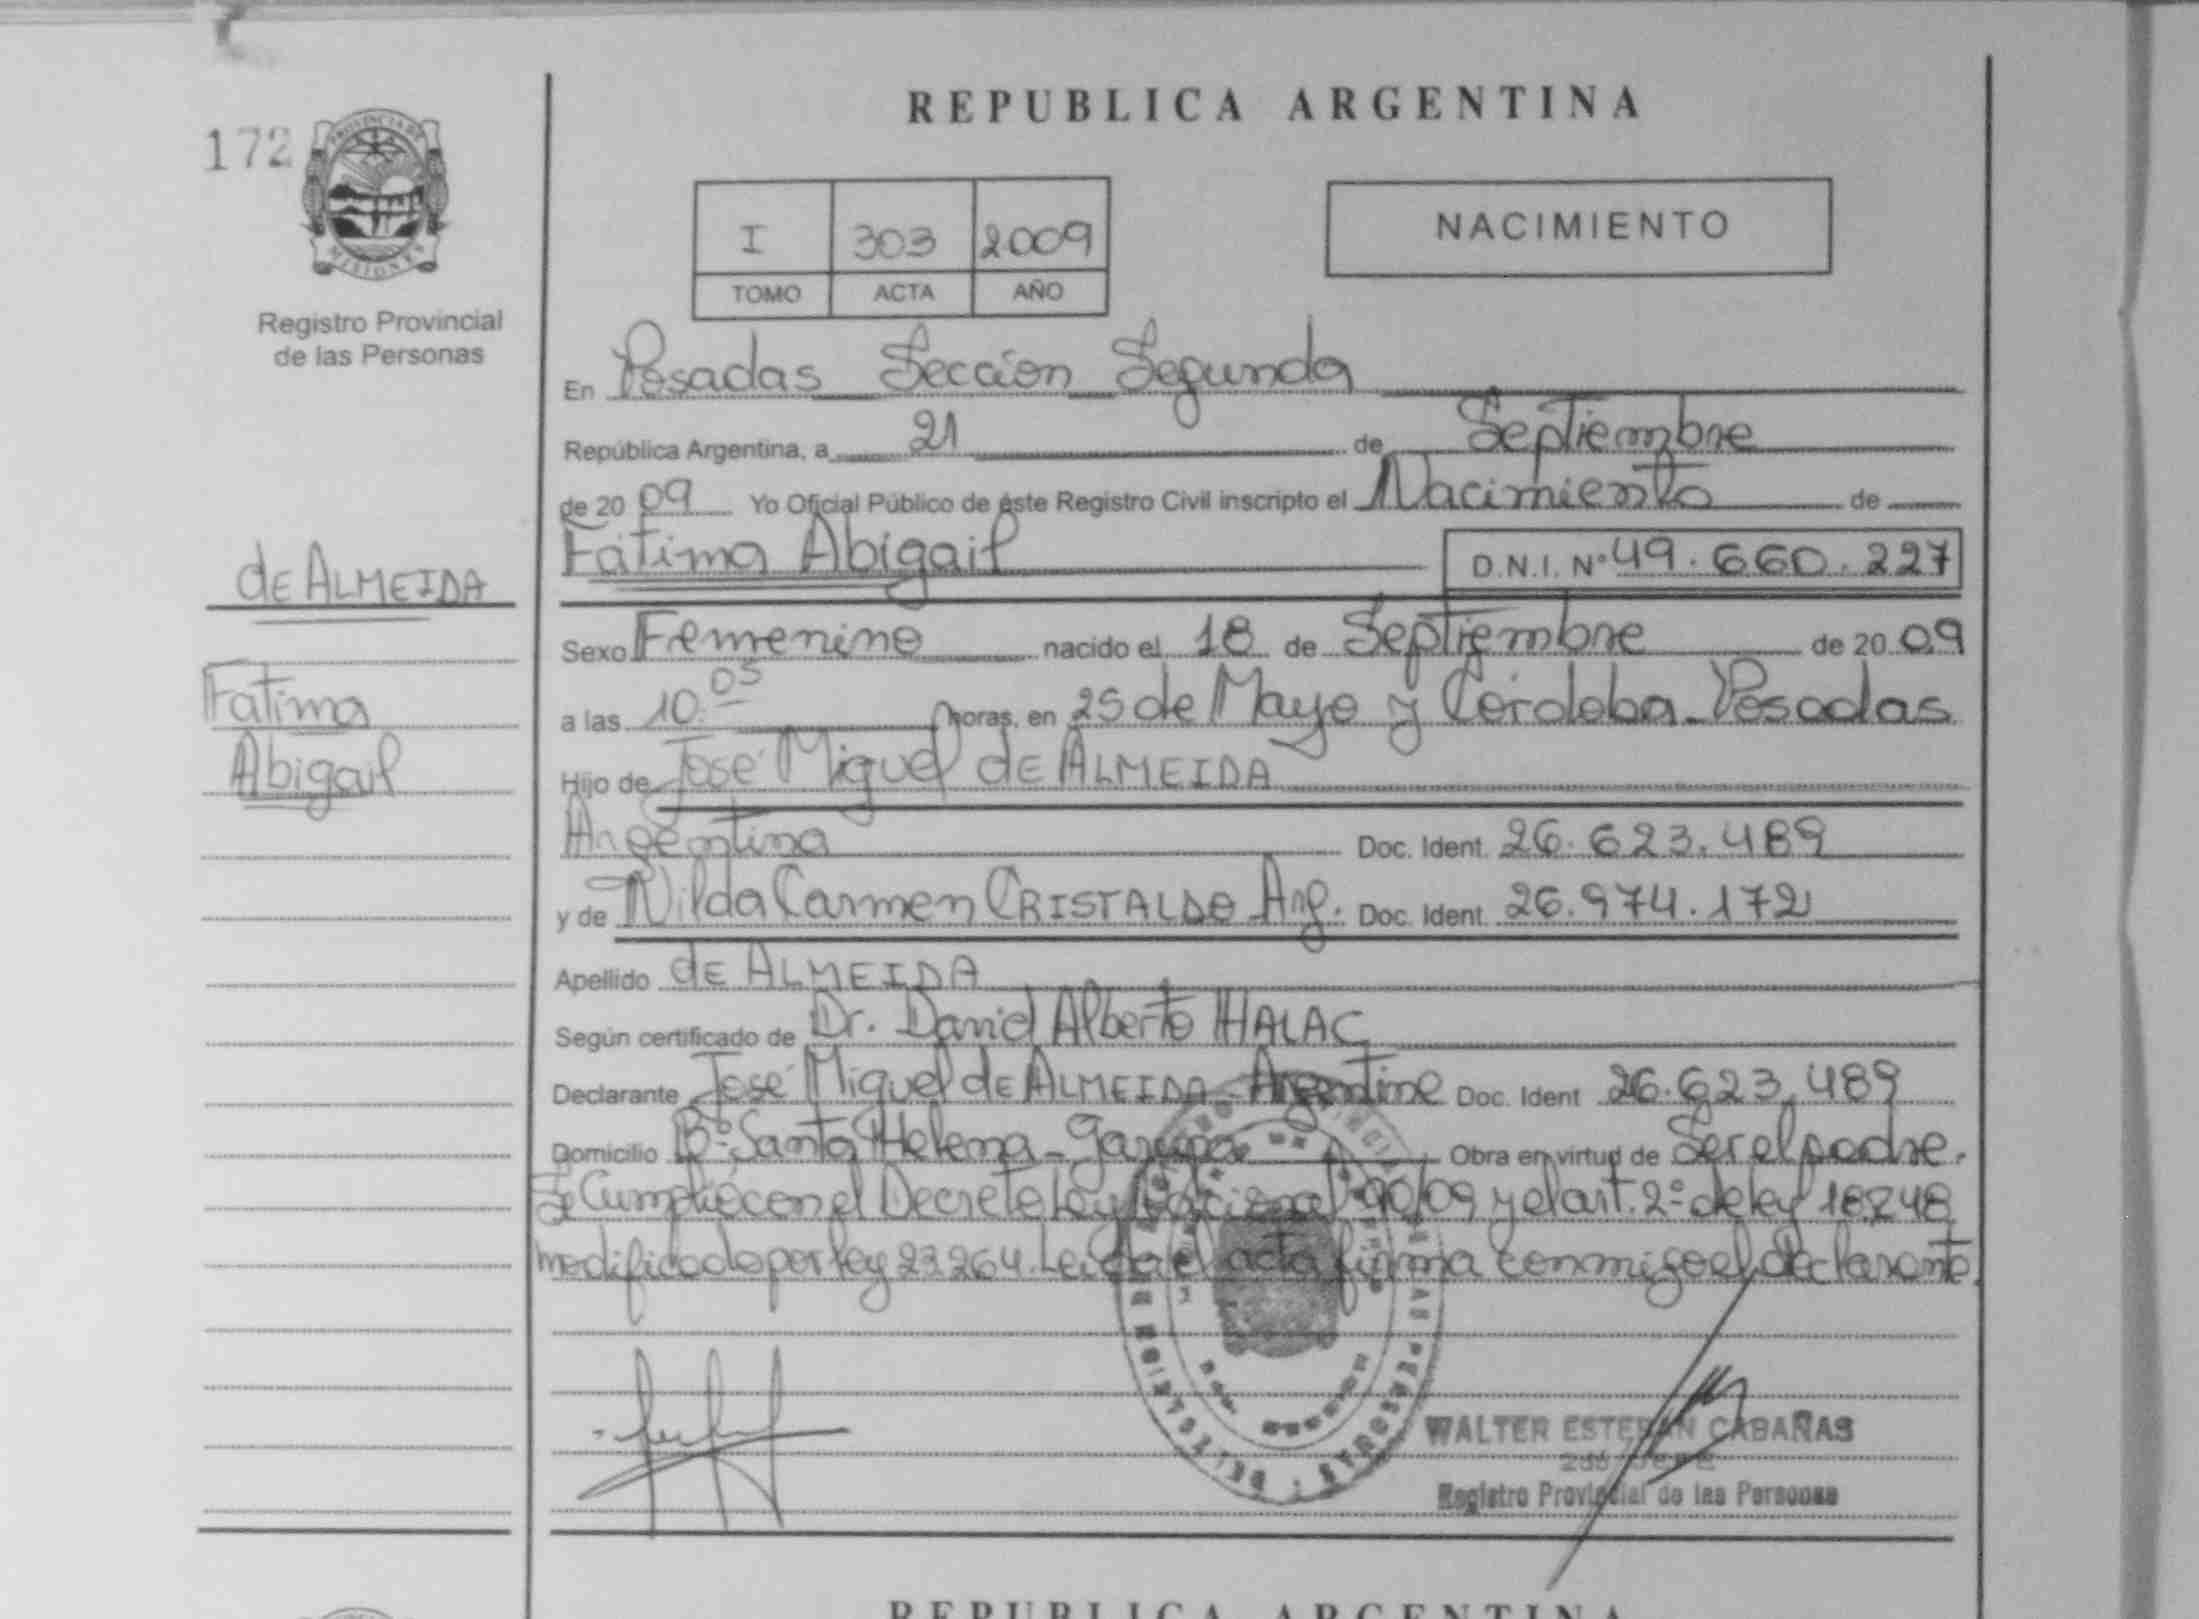 172
PROVINCIA DE
MISIONES
Registro Provincial
de las Personas
REPUBLICA ARGENTINA
I 303 2009
TOMO ACTA AÑO
NACIMIENTO
En Posadas Sección Segunda
República Argentina, a 21 de Septiembre
de 20 09 Yo Oficial Público de éste Registro Civil inscripto el Nacimiento de
Fátima Abigail D.N.I. Nº 49.660.227
de ALMEIDA
Fatima
Abigail
Sexo Femenino nacido el 18 de Septiembre de 20 09
a las 10.05 horas, en 25 de Mayo y Córdoba - Posadas
Hijo de José Miguel de ALMEIDA
Argentino Doc. Ident. 26.623.489
y de Nilda Carmen CRISTALDO Arg. Doc. Ident. 26.974.172
Apellido de ALMEIDA
Según certificado de Dr. David Alberto HALAC
Declarante José Miguel de ALMEIDA - Argentino Doc. Ident 26.623.489
Domicilio Bº Santa Helena - Garupa Obra en virtud de Ser el padre.
Se Cumplió con el Decreto Ley Nacional 90/09 y el art. 2º de ley 18248
modificado por ley 23264. Leída el acta firma conmigo el declarante.
WALTER ESTEBAN CABAÑAS
Registro Provincial de las Personas
REPUBLICA ARGENTINA